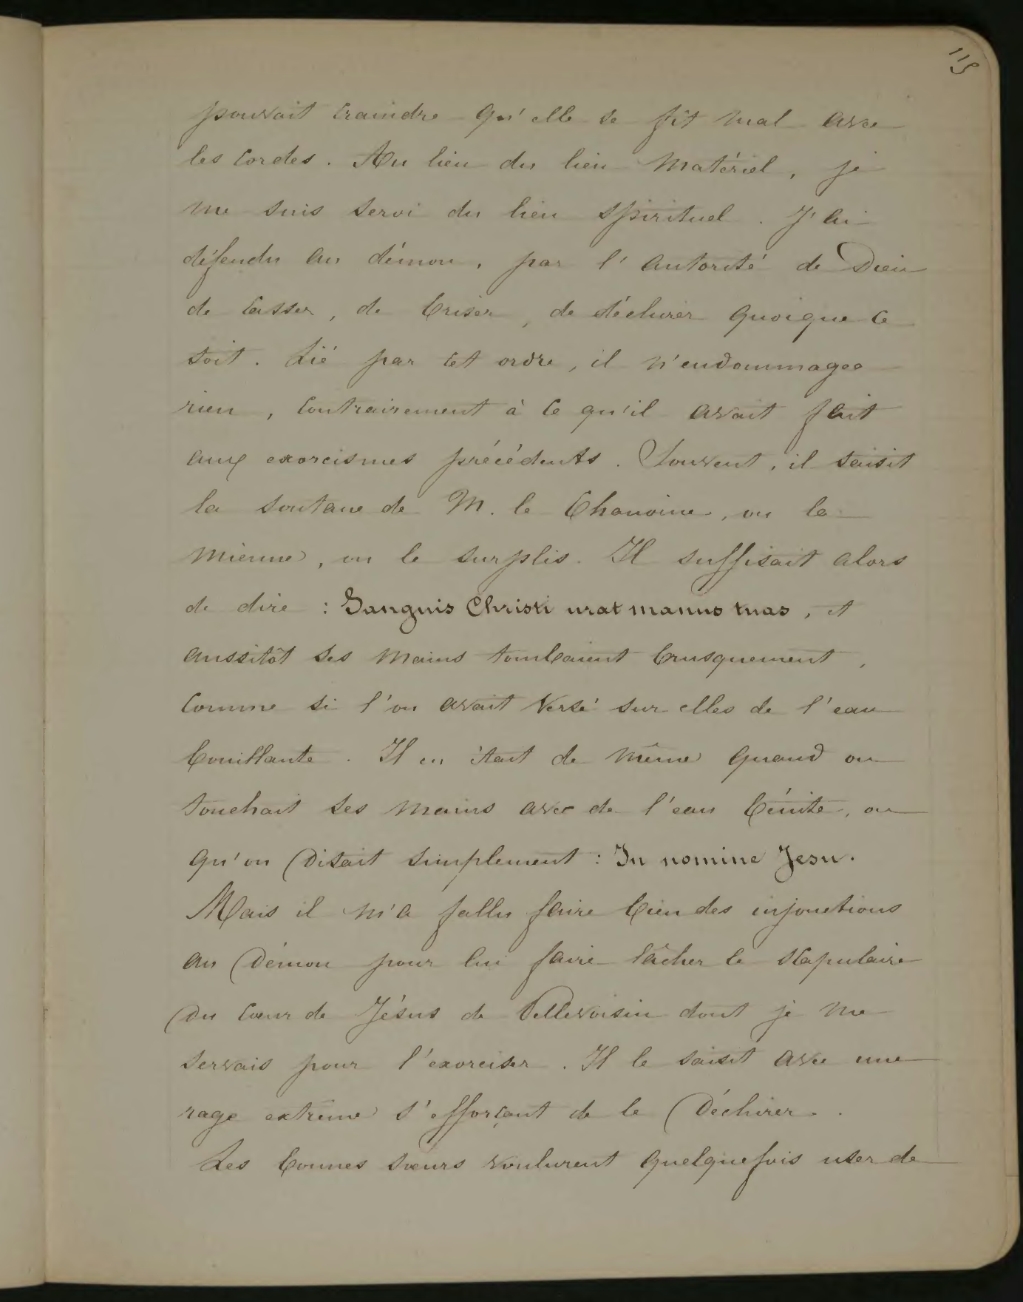 115
pouvait craindre qu'elle se fît mal avec
les cordes. Au lieu du lien matériel, je
me suis servi du lien spirituel. J'ai
défendu au démon, par l'autorité de Dieu
de casser, de briser, de déchirer quoique ce
soit. Lié par cet ordre, il n'endommagea
rien, contrairement à ce qu'il avait fait
aux exorcismes précédents. Souvent, il saisit
la soutane de M. le Chanoine, ou la
mienne, ou le surplis. Il suffisait alors
de dire : Sanguis Christi urat manus tuas, et
aussitôt ses mains tombaient brusquement,
comme si l'on avait versé sur elles de l'eau
bouillante. Il en était de même quand on
touchait ses mains avec de l'eau bénite, ou
qu'on disait simplement : In nomine Jesu.
Mais il m'a fallu faire bien des injonctions
au démon pour lui faire lâcher le scapulaire
du Cœur de Jésus de Pellevoisin dont je me
servais pour l'exorciser. Il le saisit avec une
rage extrême s'efforçant de le déchirer.
Les bonnes sœurs voulurent quelquefois user de